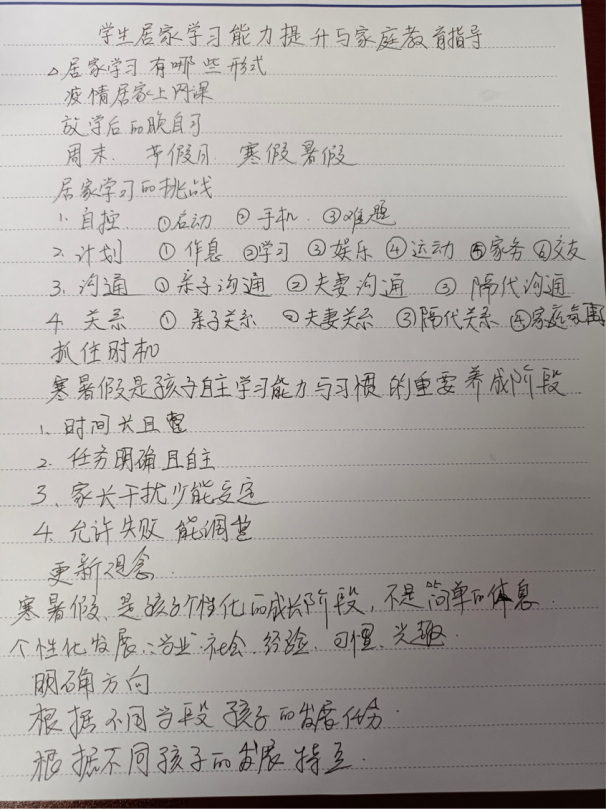 学生居家学习能力提升与家庭教育指导
△居家学习有哪些形式
疫情居家上网课
放学后的晚自习
周末. 节假日. 寒假暑假
居家学习的挑战
1. 自控 ①启动 ②手机 ③难题
2. 计划 ①作息 ②学习 ③娱乐 ④运动 ⑤家务 ⑥交友
3. 沟通 ①亲子沟通 ②夫妻沟通 ③隔代沟通
4. 关系 ①亲子关系 ②夫妻关系 ③隔代关系 ④家庭氛围
抓住时机
寒暑假是孩子自主学习能力与习惯的重要养成阶段
1. 时间长且整
2. 任务明确且自主
3. 家长干扰少能定
4. 允许失败 能调整
更新观念.
寒暑假,是孩子个性化的成长阶段,不是简单的休息
个性化发展:学业.社会.经验.习惯.兴趣.
明确方向
根据不同学段孩子的发展任务.
根据不同孩子的发展特点.